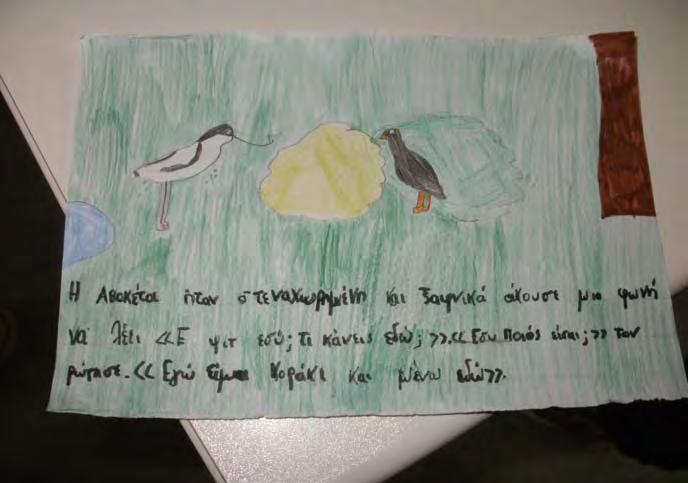 Η Αβοκέτα ήταν στεναχωρημένη και ξαφνικά άκουσε μια φωνή
να λέει «Ε ψιτ εσύ; τι κάνεις εδώ; ».«Εσυ ποιός είσαι;» τον
ρώτησε.«Εγώ είμαι Κοράκι και μένω εδώ».